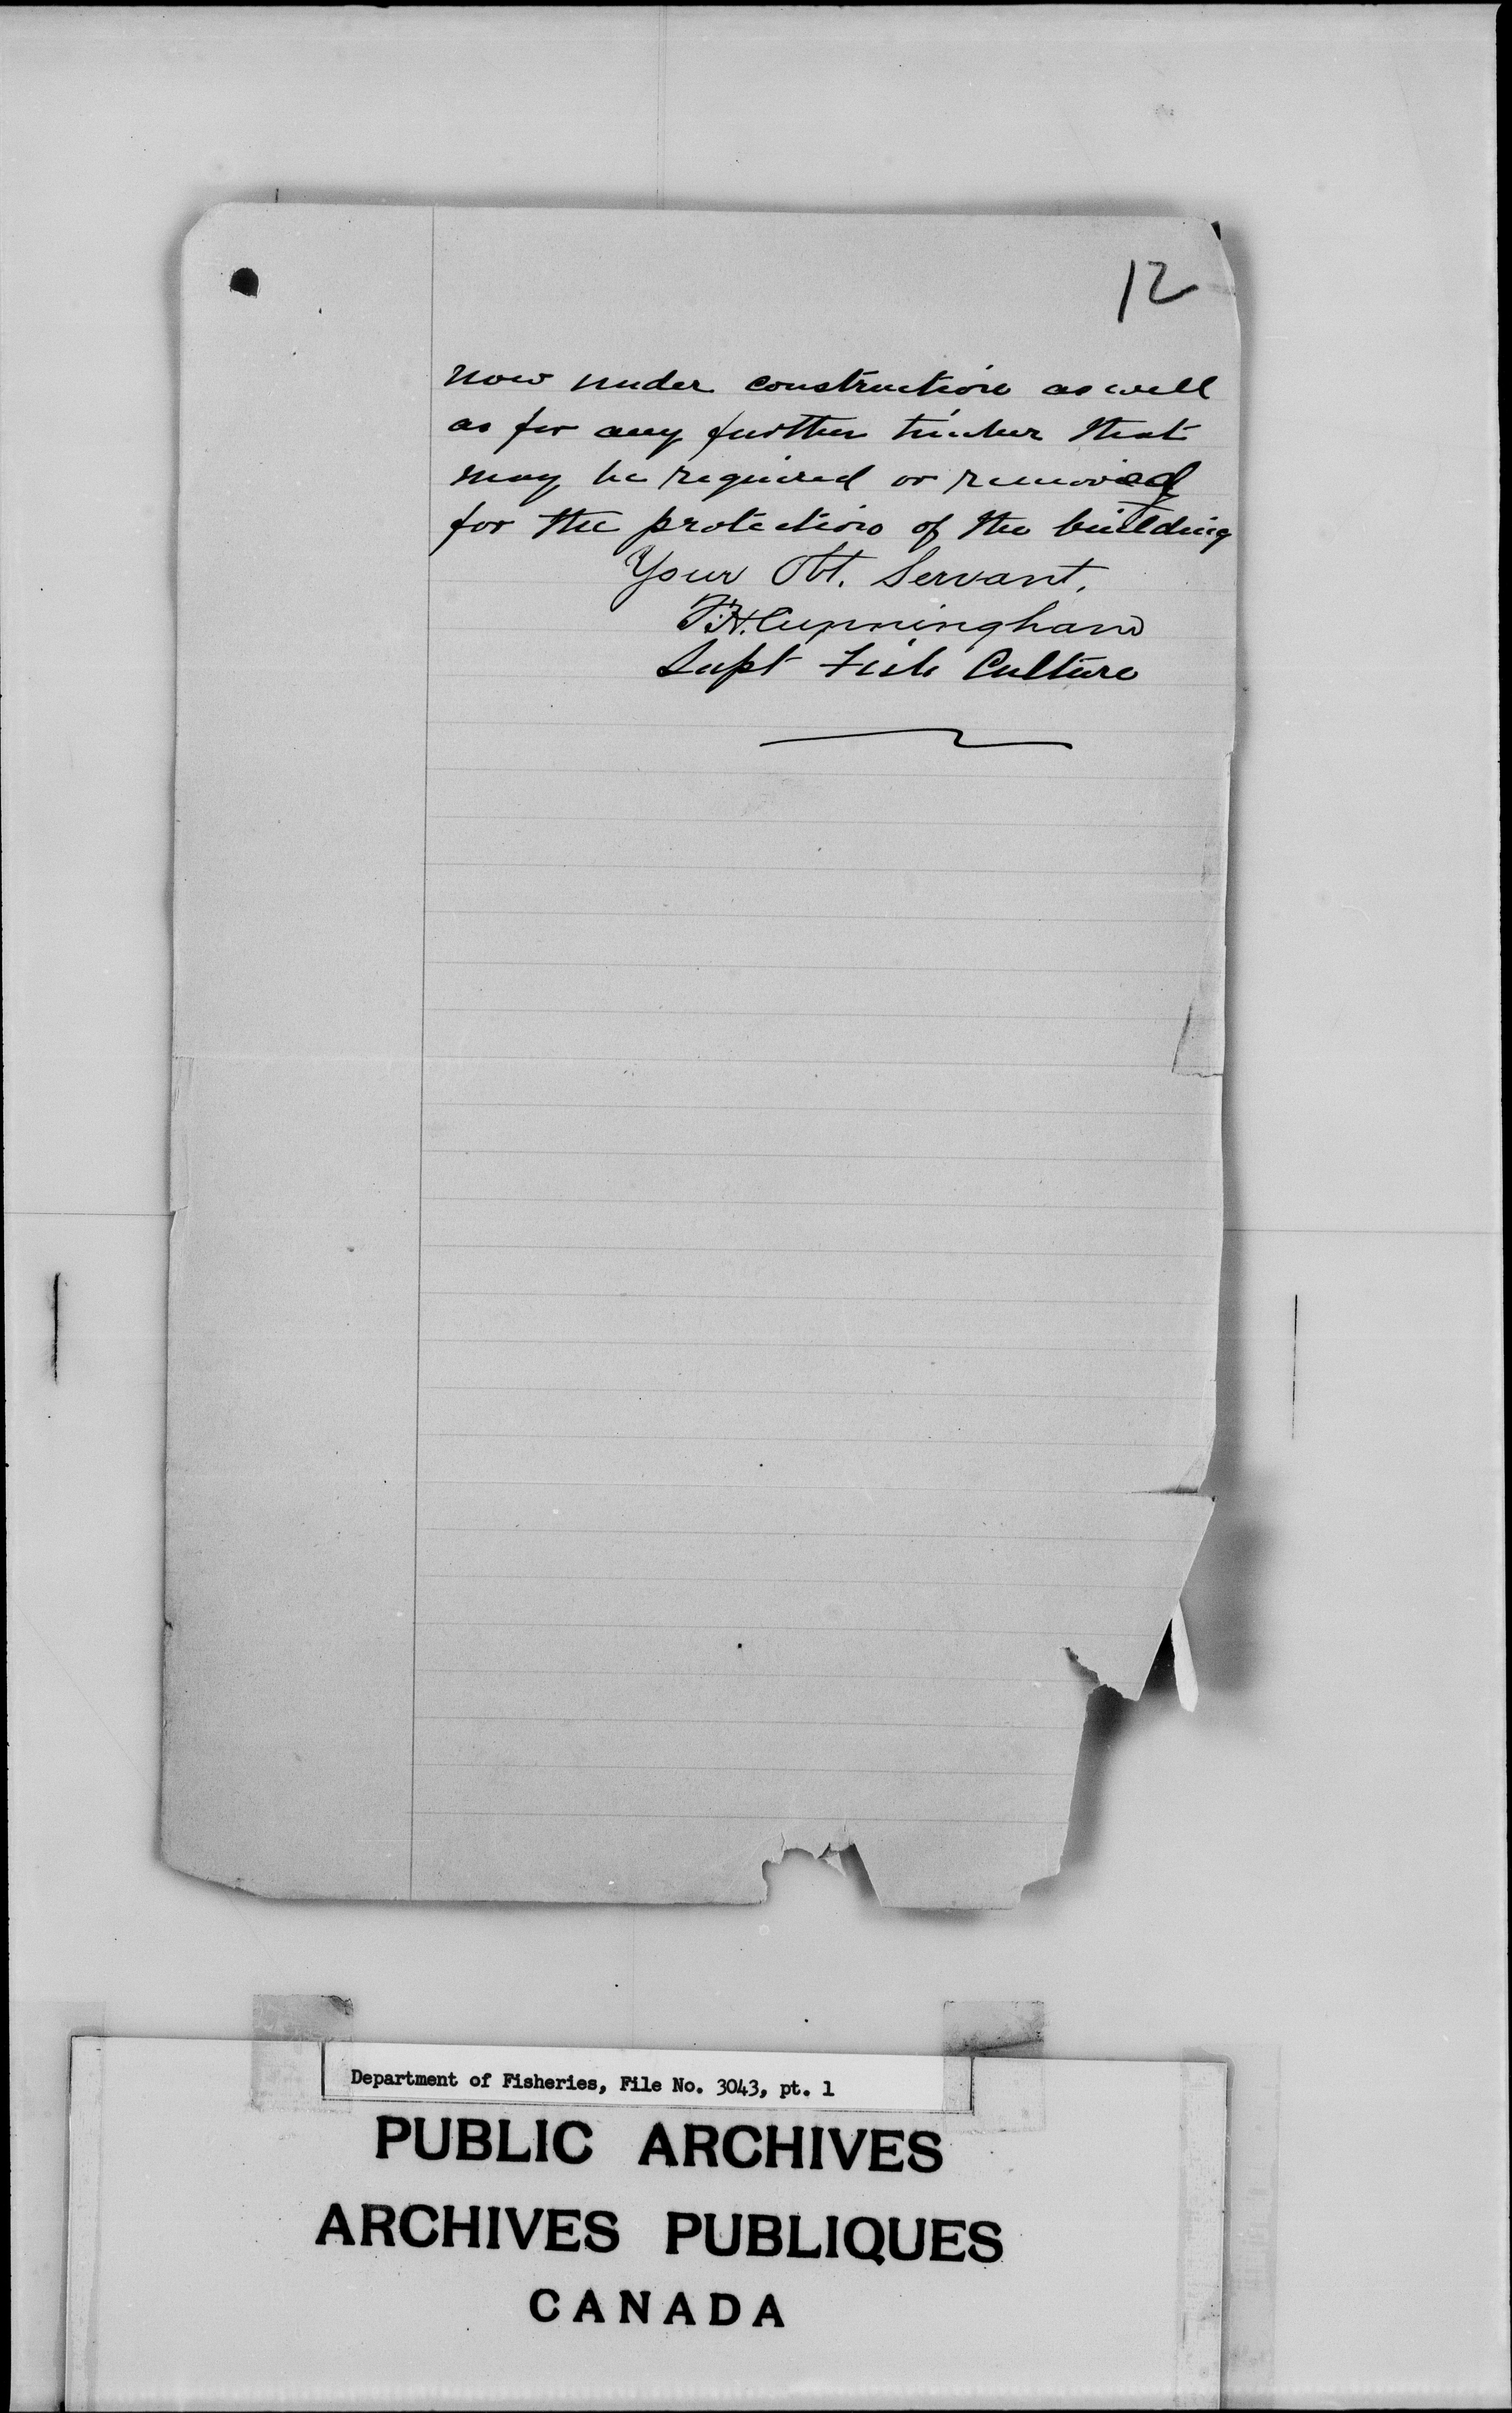 12
now under construction as well
as for any further timber that
may be required or removed
for the protection of the building
Your Obt. Servant,
F.H. Cunningham
Supt Fish Culture
Department of Fisheries, File No. 3043, pt. 1
PUBLIC ARCHIVES
ARCHIVES PUBLIQUES
CANADA